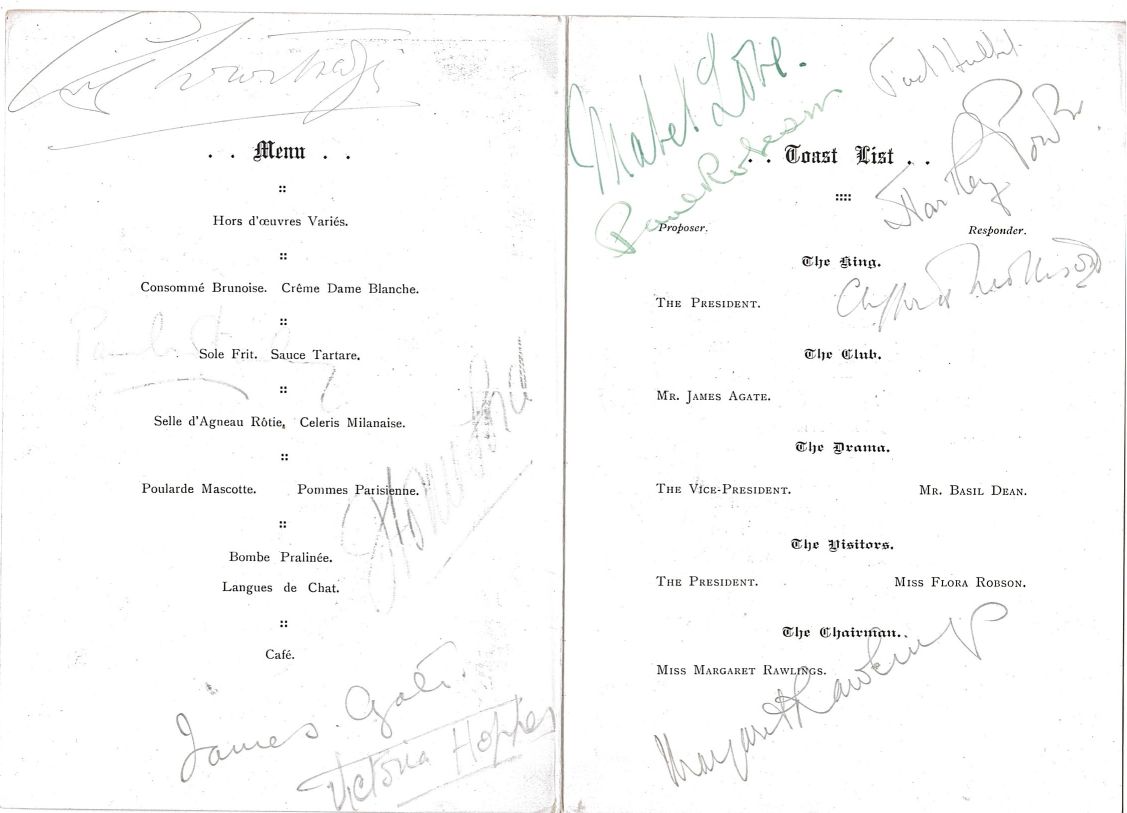 . . Menu . .
Hors d'œuvres Variés.
Consommé Brunoise. Crême Dame Blanche.
Sole Frit. Sauce Tartare.
Selle d'Agneau Rôtie, Celeris Milanaise.
Poularde Mascotte. Pommes Parisienne.
Bombe Pralinée.
Langues de Chat.
Café.
James Agate.
Victoria Hopper
Mabel Love.
Paul Robeson
Jack Hulbert.
Hartley Power.
. . Toast List . .
Proposer. Responder.
The King.
Clifford Mollison
THE PRESIDENT.
The Club.
MR. JAMES AGATE.
The Drama.
THE VICE-PRESIDENT. MR. BASIL DEAN.
The Visitors.
THE PRESIDENT. MISS FLORA ROBSON.
The Chairman.
MISS MARGARET RAWLINGS.
Margaret Rawlings